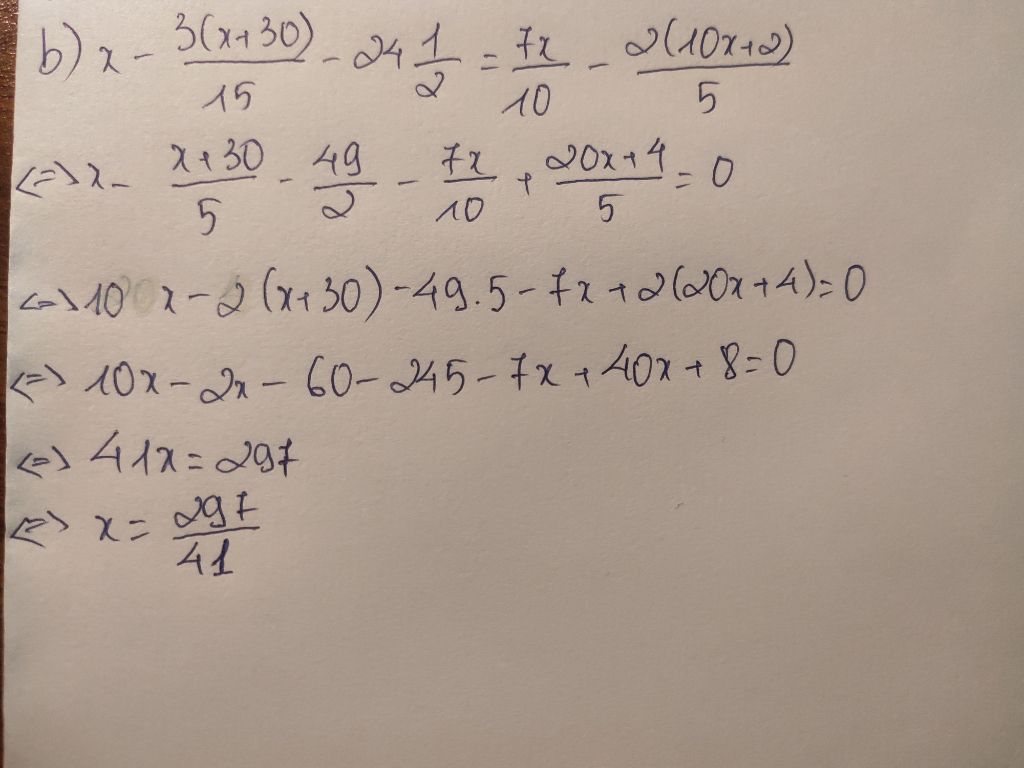 b) x - 3(x+30)/15 - 24 1/2 = 7x/10 - 2(10x+2)/5
<=> x - x+30/5 - 49/2 - 7x/10 + 20x+4/5 = 0
<=> 10x - 2(x+30) - 49.5 - 7x + 2(20x+4) = 0
<=> 10x - 2x - 60 - 245 - 7x + 40x + 8 = 0
<=> 41x = 297
<=> x = 297/41